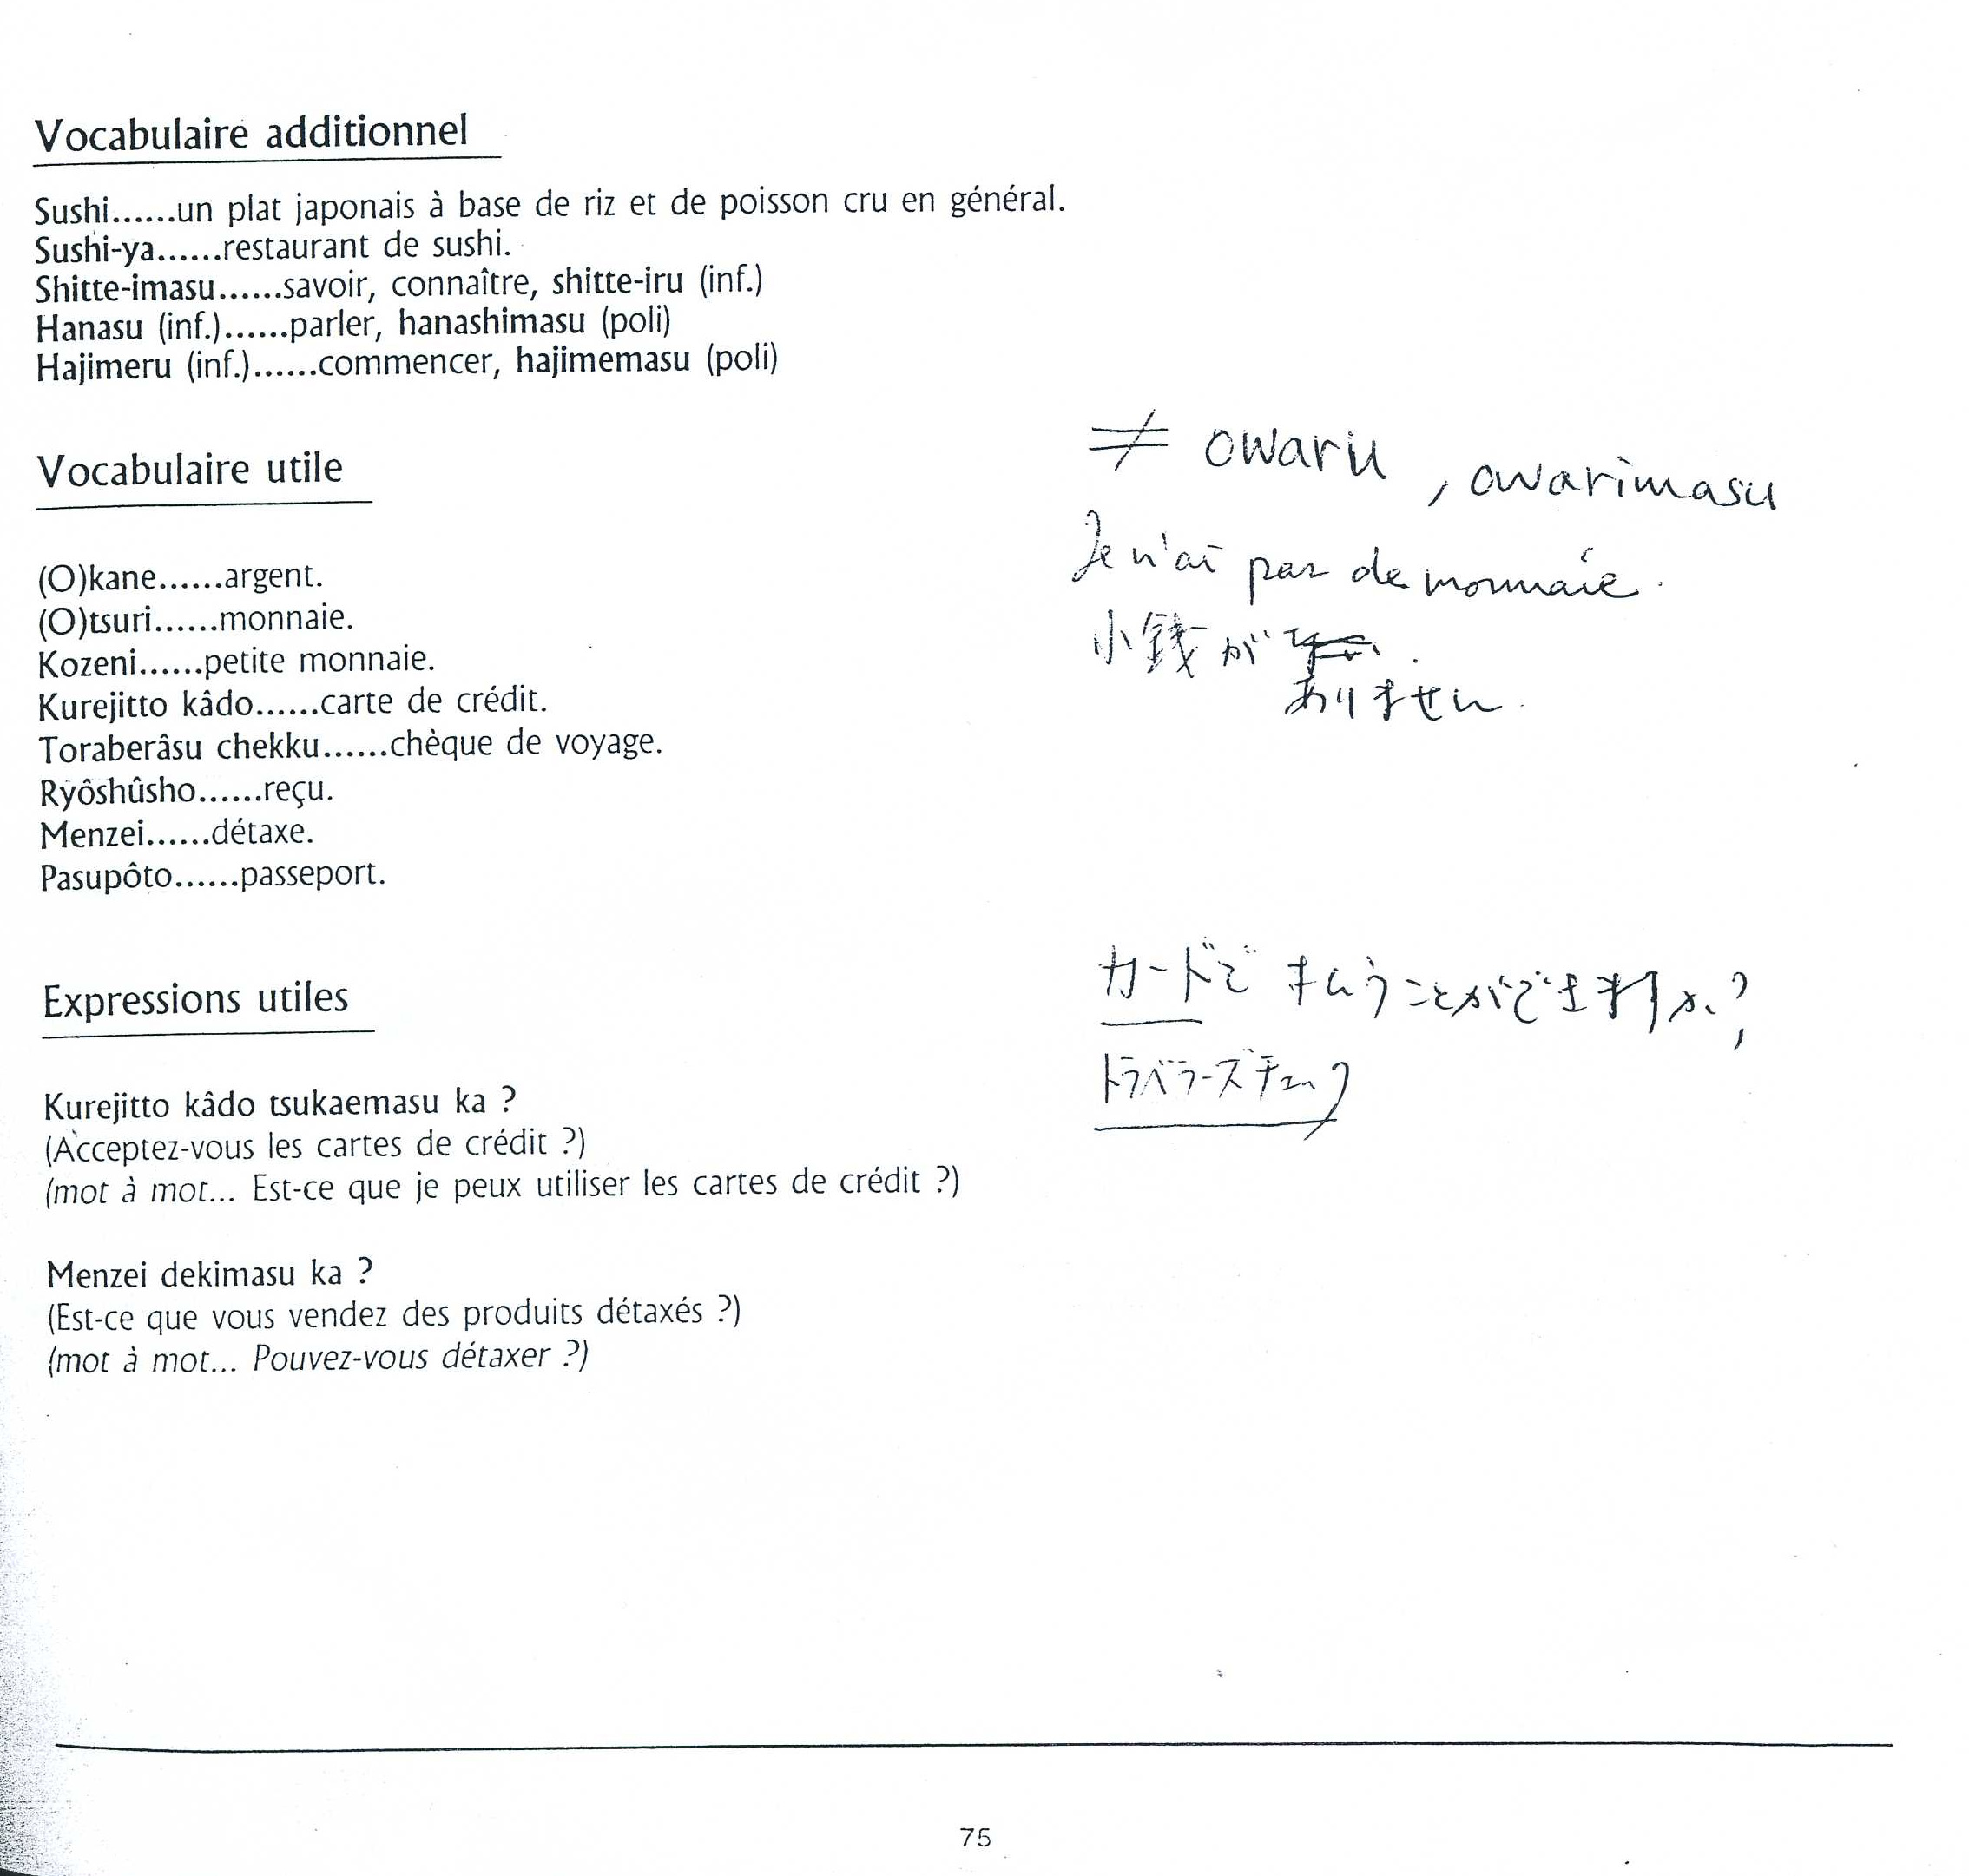 Vocabulaire additionnel
Sushi......un plat japonais à base de riz et de poisson cru en général.
Sushi-ya......restaurant de sushi.
Shitte-imasu......savoir, connaître, shitte-iru (inf.)
Hanasu (inf.)......parler, hanashimasu (poli)
Hajimeru (inf.)......commencer, hajimemasu (poli)
≠ owaru , owarimasu
Vocabulaire utile
Je n'ai pas de monnaie.
(O)kane......argent.
(O)tsuri......monnaie.
小銭が
ありません.
Kozeni......petite monnaie.
Kurejitto kâdo......carte de crédit.
Toraberâsu chekku......chèque de voyage.
Ryôshûsho......reçu.
Menzei......détaxe.
Pasupôto......passeport.
Expressions utiles
カードで うことができますか?
トラベラーズチェック
Kurejitto kâdo tsukaemasu ka ?
(Acceptez-vous les cartes de crédit ?)
(mot à mot... Est-ce que je peux utiliser les cartes de crédit ?)
Menzei dekimasu ka ?
(Est-ce que vous vendez des produits détaxés ?)
(mot à mot... Pouvez-vous détaxer ?)
75